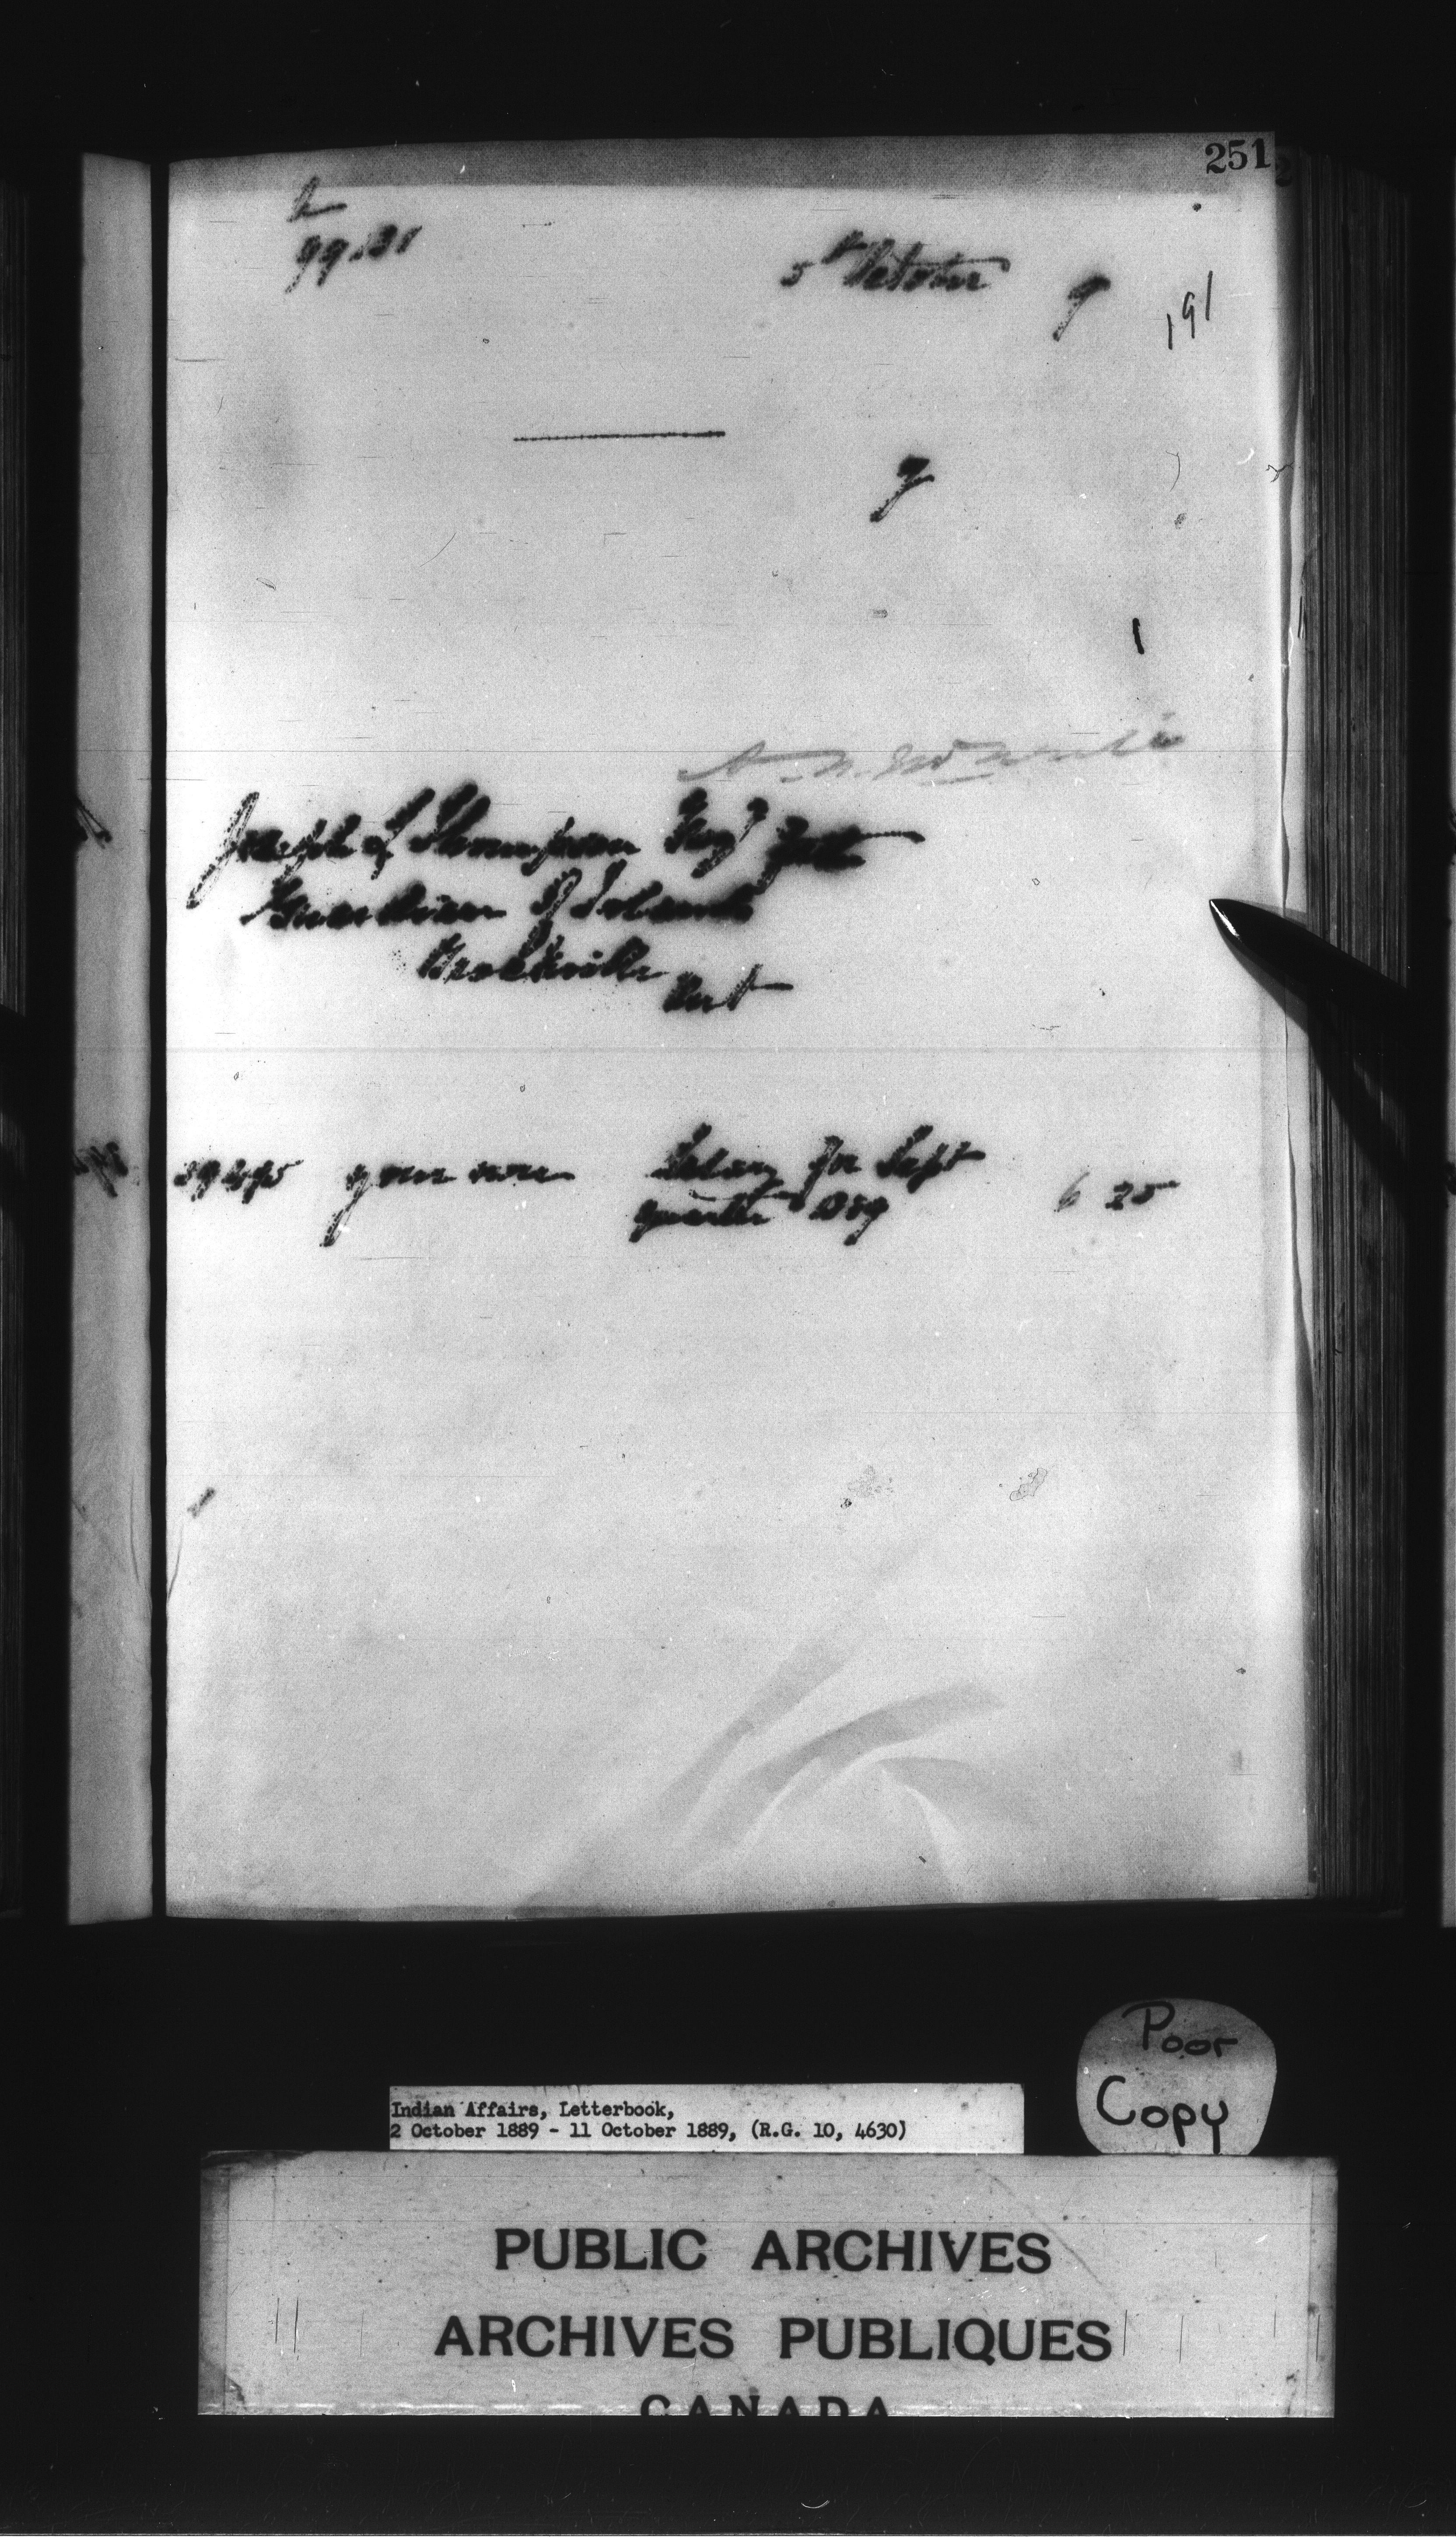 251
5th October 9
191
9
1
Joseph L Thompson Esqr
Guardian of Islands
Brockville
Ont
your own Salary for Sept
quarter 1889 6 25
Poor
Copy
Indian Affairs, Letterbook,
2 October 1889 - 11 October 1889, (R.G. 10, 4630)
PUBLIC ARCHIVES
ARCHIVES PUBLIQUES
CANADA